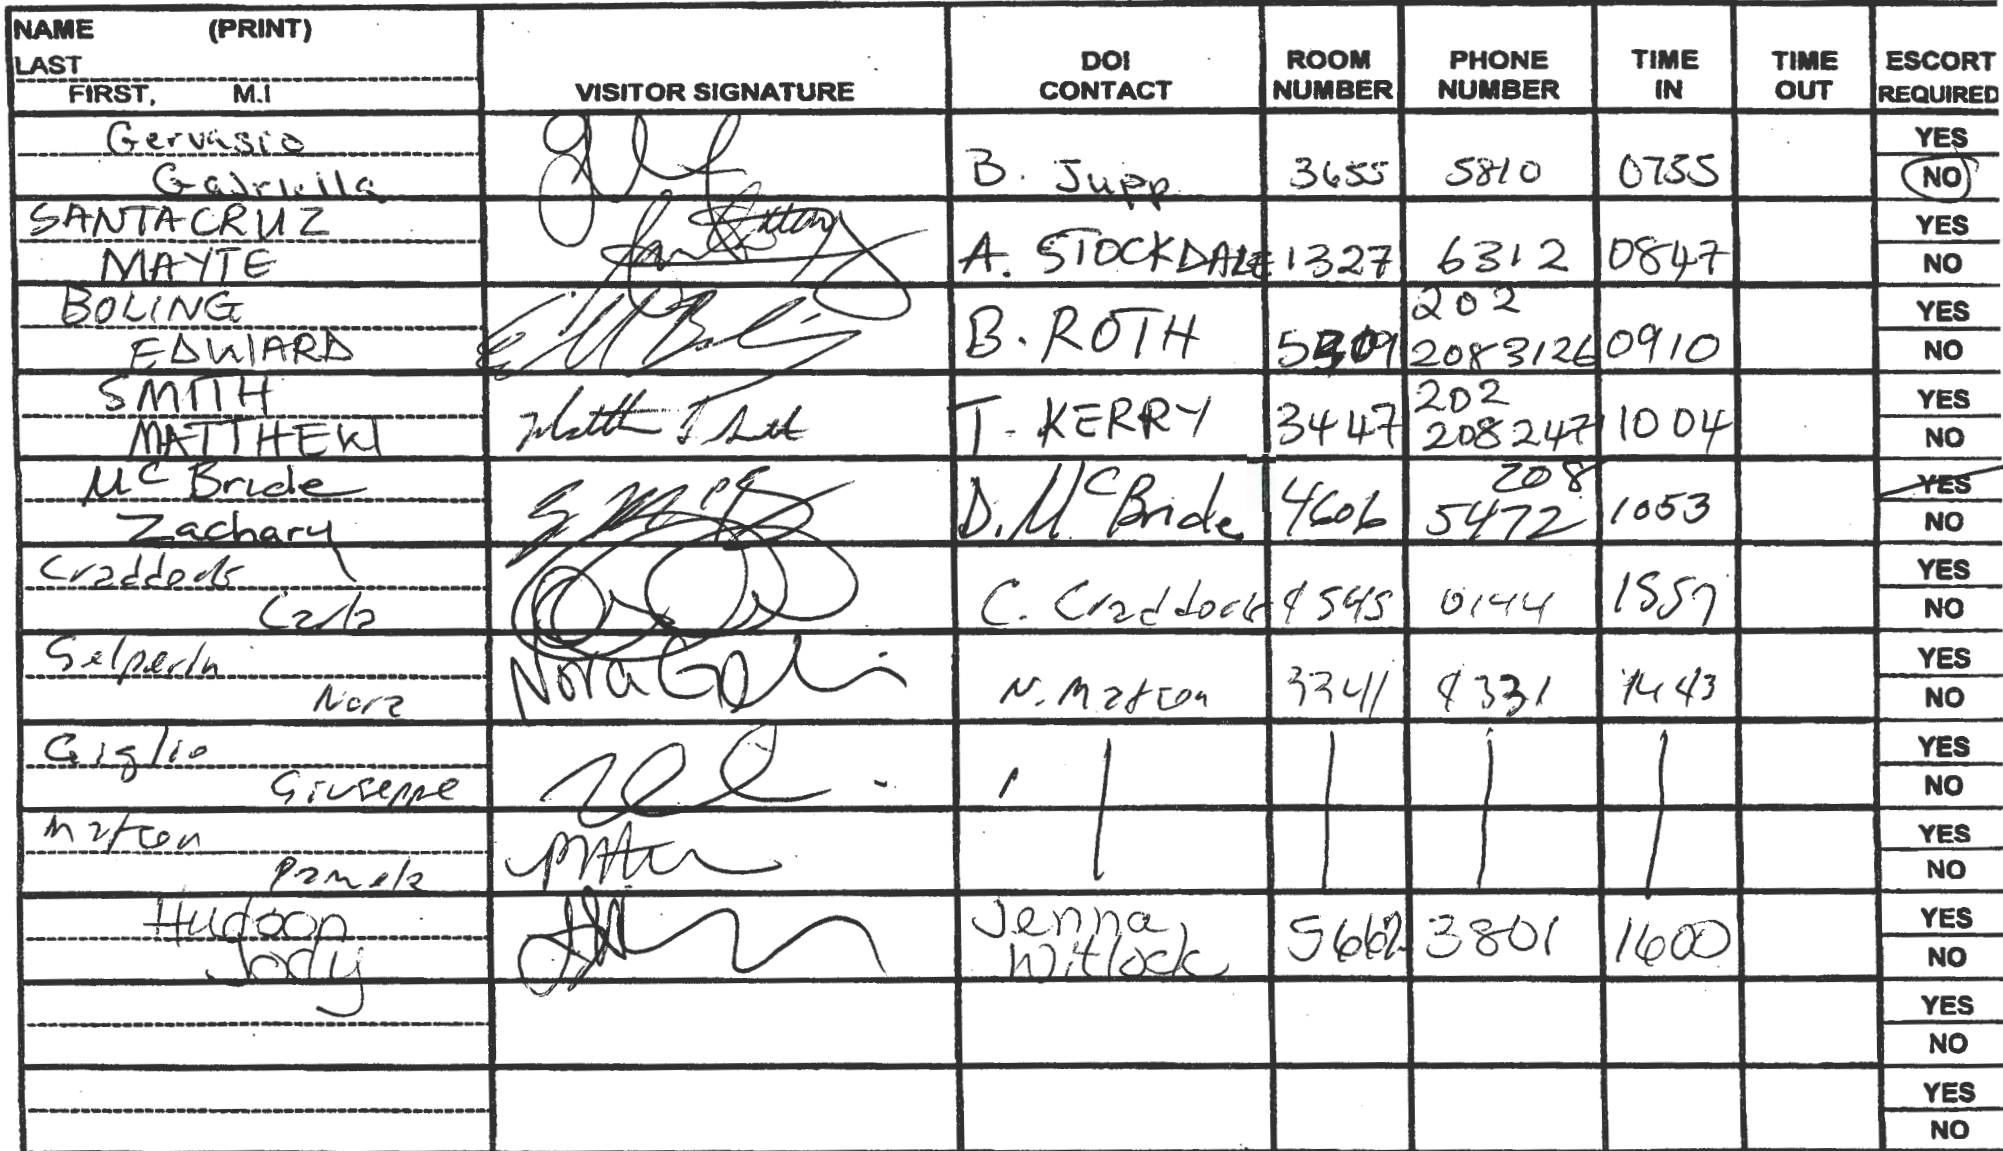 NAME (PRINT)
LAST
FIRST, M.I
VISITOR SIGNATURE
DOI CONTACT
ROOM NUMBER
PHONE NUMBER
TIME IN
TIME OUT
ESCORT REQUIRED
Gervasio
Gabriella B. Jupp 3655 5810 0735 YES NO
SANTACRUZ
MAYTE A. STOCKDALE 1327 6312 0847 YES NO
BOLING 202
EDWARD B. ROTH 2083126 0910 YES NO
SMITH 202
MATTHEW T. KERRY 3447 208247 1004 YES NO
McBride 208
Zachary D. McBride 4606 5472 1053 YES NO
Craddock
Carla C. Craddock 4545 0144 YES NO
Gelperin
Nora Nora N. Matson 3341 4331 1443 YES NO
Giglio
Giuseppe YES NO
Matson
Pamela YES NO
Hudson Jenna
Jody Witlock 5662 3801 1600 YES NO
YES
NO
YES
NO